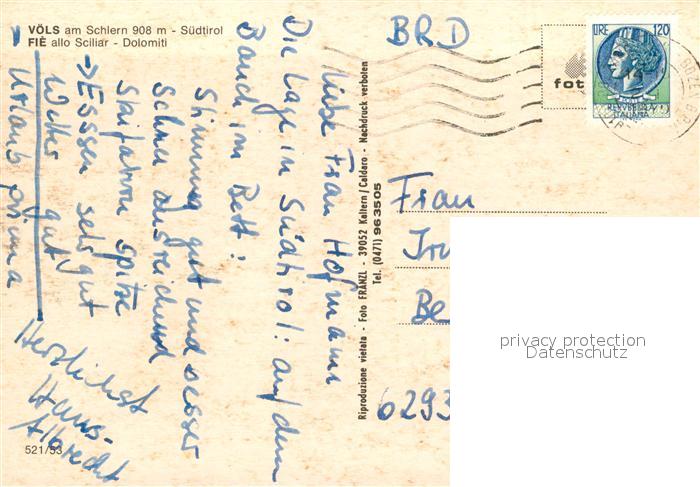 VÖLS am Schlern 908 m - Südtirol
FIÈ allo Sciliar - Dolomiti
Liebe Frau Hofmann
Die Lage in Südtirol: auf dem
Bauch im Bett!
Stimmung gut und besser
Schnee ausreichend
Skifahren spitze
→ Esssen sehr gut
Wetter gut
Urlaub prima
Herzlichst
Hans-
Albrecht
521/53
Riproduzione vietata - Foto FRANZL - 39052 Kaltern/Caldaro - Nachdruck verboten
Tel. (0471) 963505
BRD
fot
LIRE 120
REPVBBLICA
ITALIANA
Frau
Be
6293
privacy protection
Datenschutz